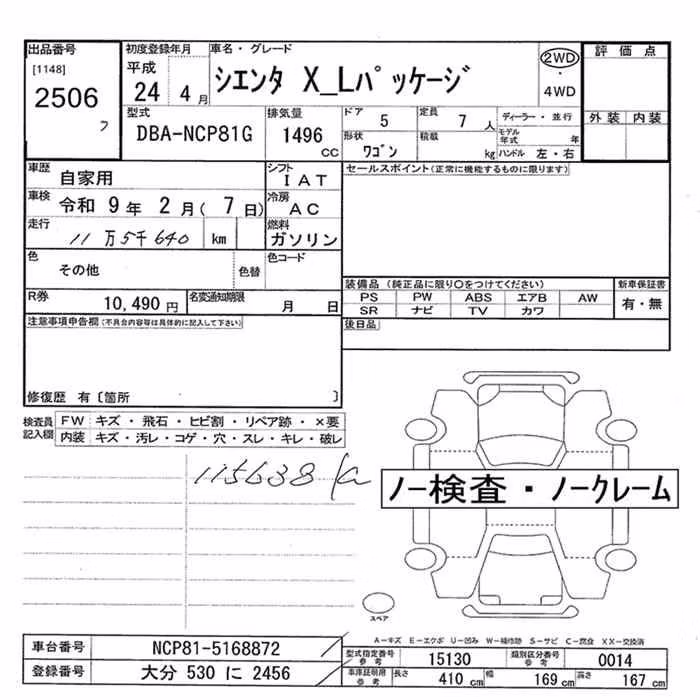 出品番号
[1148]
2506
フ
初度登録年月
平成
24 4月
車名・グレード
シエンタ X_Lパッケージ
2WD
・
4WD
評価点
外装 内装
型式
DBA-NCP81G
排気量
1496
CC
ドア 5
定員 7人
ディーラー・並行
形状
ワゴン
積載
kg
モデル年式 年
ハンドル 左・右
車歴
自家用
シフト
IAT
セールスポイント(正常に機能するものに限ります)
車検
令和 9年 2月( 7日)
冷房
AC
走行
11万5千640 km
燃料
ガソリン
色
その他
色替
色コード
装備品 (純正品に限り○をつけてください)
PS PW ABS エアB AW
SR ナビ TV カワ
新車保証書
有・無
R券
10,490円
名変通知期限
月 日
後日品
注意事項申告欄(不具合内容等は具体的に記入して下さい)
修復歴 有〔箇所 〕
検査員記入欄
FW キズ・飛石・ヒビ割・リペア跡・×要
内装 キズ・汚レ・コゲ・穴・スレ・キレ・破レ
115638
ノー検査・ノークレーム
スペア
A−キズ E−エクボ U−凹み W−補修跡 S−サビ C−腐食 XX−交換済
車台番号
NCP81-5168872
登録番号
大分 530 に 2456
型式指定番号
参考
15130
類別区分番号
参考
0014
車庫証明用
参考
長さ 410cm
幅 169cm
高さ 167cm